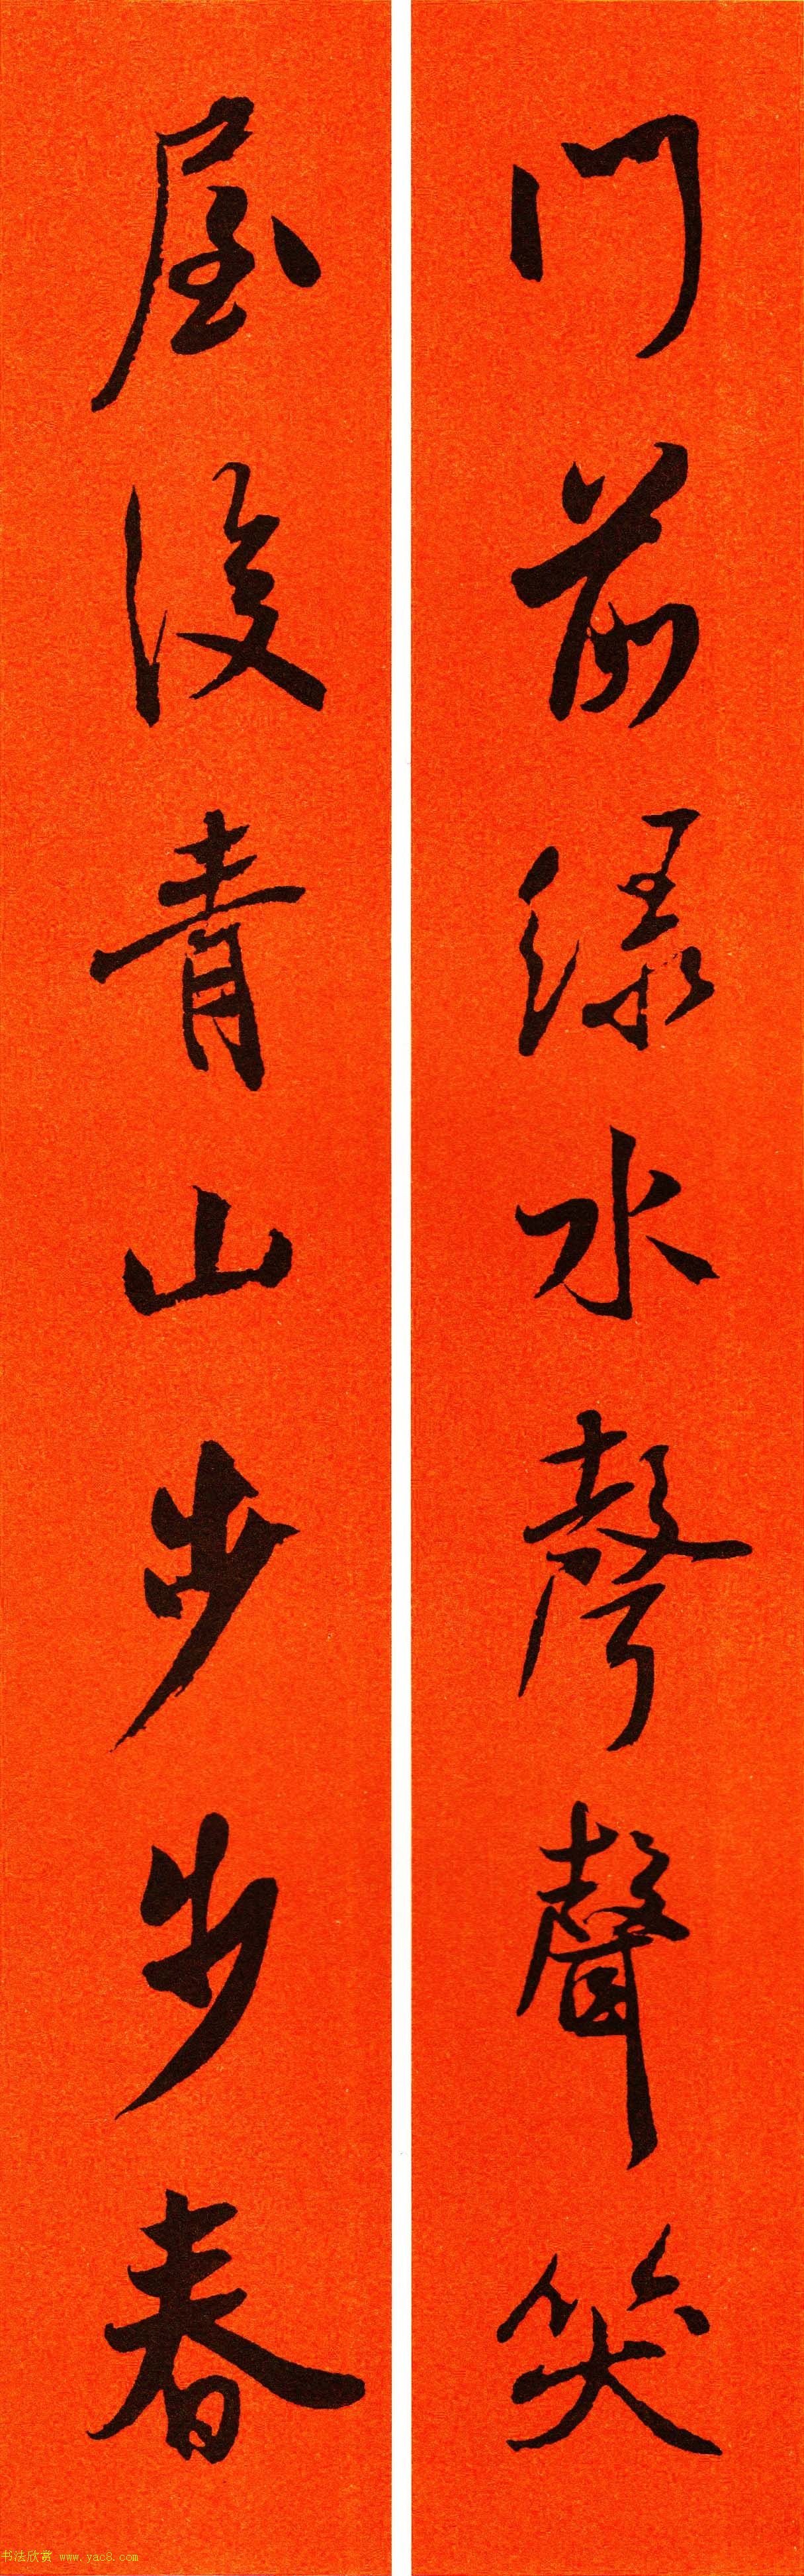 門前綠水聲聲笑
屋後青山步步春
书法欣赏 www.yac8.com